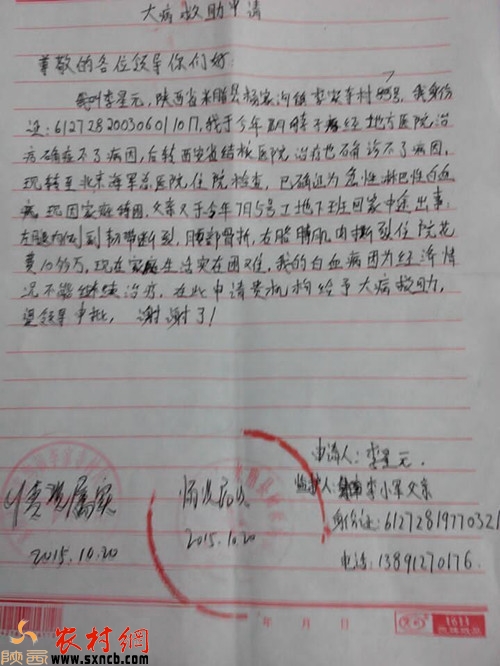 大病救助申请
尊敬的各位领导你们好:
我叫李星元,陕西省米脂县杨家沟镇李家寺村 我身份
证:612728200306011017,我于今年 经地方医院治
病确症不了病因,后转西安省结核医院治疗也确诊不了病因,
现转至北京海军总医院住院检查,已确证为急性淋巴性白血
病现因家庭缘因,父亲又于今年7月5号工地下班回家中途出事:
左腿 韧带断裂,腰部骨折,右胳膊肌肉撕裂住院花
费10多万,现在家庭生活实在困难,我的白血病因为经济情
况不能继续治疗,在此申请贵机构给予大病救助,
望领导审批, 谢谢了!
申请人:李星元.
监护人: 李小军父亲
情况属实
身份证:61272819770321
2015.10.20
2015.10.20
电话:13891270176.
年 月 日
1611
陕西
农村網
www.sxncb.com